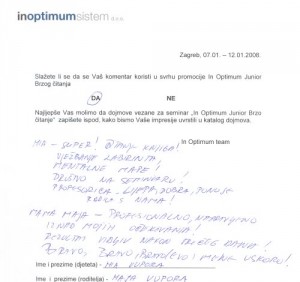 inoptimumsistem d.o.o.
Zagreb, 07.01. – 12.01.2008.
Slažete li se da se Vaš komentar koristi u svrhu promocije In Optimum Junior
Brzog čitanja
DA NE
Najljepše Vas molimo da dojmove vezane za seminar „In Optimum Junior Brzo
čitanje" zapišete ispod, kako bismo Vaše impresije uvrstili u katalog dojmova.
In Optimum team
MIA - SUPER! KNJIGA!
VJEŽBANJE LABIRINTA
MENTALNE MAPE!
DRUŠTVO NA SEMINARU!
PROFESORICA - LIJEPA, DOBRA,
S NAMA!
MAMA MAJA - PROFESIONALNO,
IZNAD MOJIH OČEKIVANJA!
NAKON DANA!
BRAVO, BRAVO,
Ime i prezime (djeteta) - MIA VUPORA
Ime i prezime (roditelja) - MAJA VUPORA